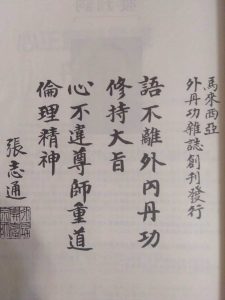 馬來西亞
外丹功雜誌創刊發行
語不離外內丹功
修持大旨
心不違尊師重道
倫理精神
張志通